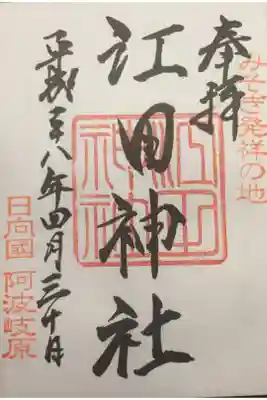 奉拝
みそぎ発祥の地
江田神社
平成二十八年四月三十日
日向國 阿波岐原